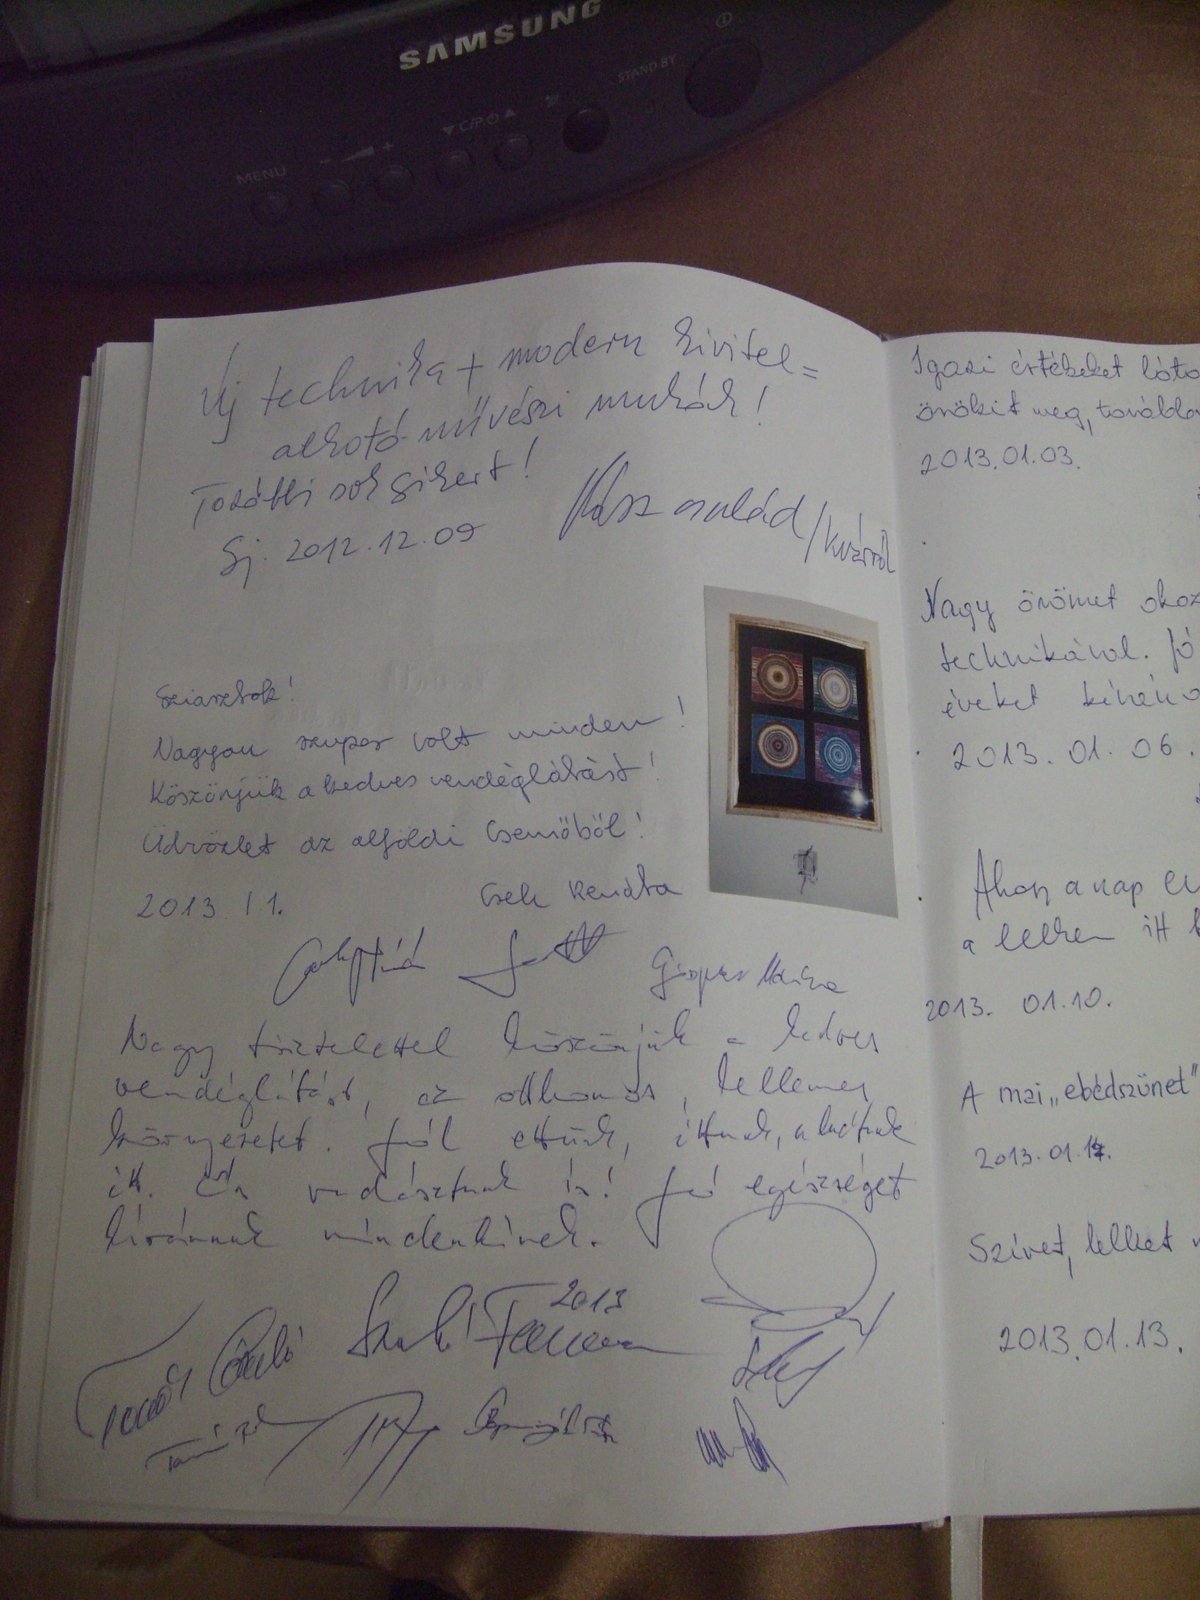 SAMSUNG
STAND BY
C/P.
MENU - +
Új technika + modern kivitel =
alkotó művészi munkák!
További sok sikert!
Sj. 2012.12.09
Kász család / Kvárról
Sziasztok!
Nagyon szuper volt minden!
Köszönjük a kedves vendéglátást!
Üdvözlet az alföldi Csemőből!
2013. 1 1.
Cseh Renáta
Nagy tisztelettel köszönjük a kedves
vendéglátást, az otthonos, kellemes
környezetet. Jól ettünk, ittunk, aludtunk
itt. És vadásztunk is! Jó egészséget
kívánunk mindenkinek.
2013
Igazi értékeket
örökít meg, további
2013.01.03.
Nagy örömet okoz
technikával. Jó
éveket
2013. 01. 06.
Ahogy a nap
a lelkem itt
2013. 01.10.
A mai „ebédszünet"
2013.01.
Szívet, lelket
2013.01.13.